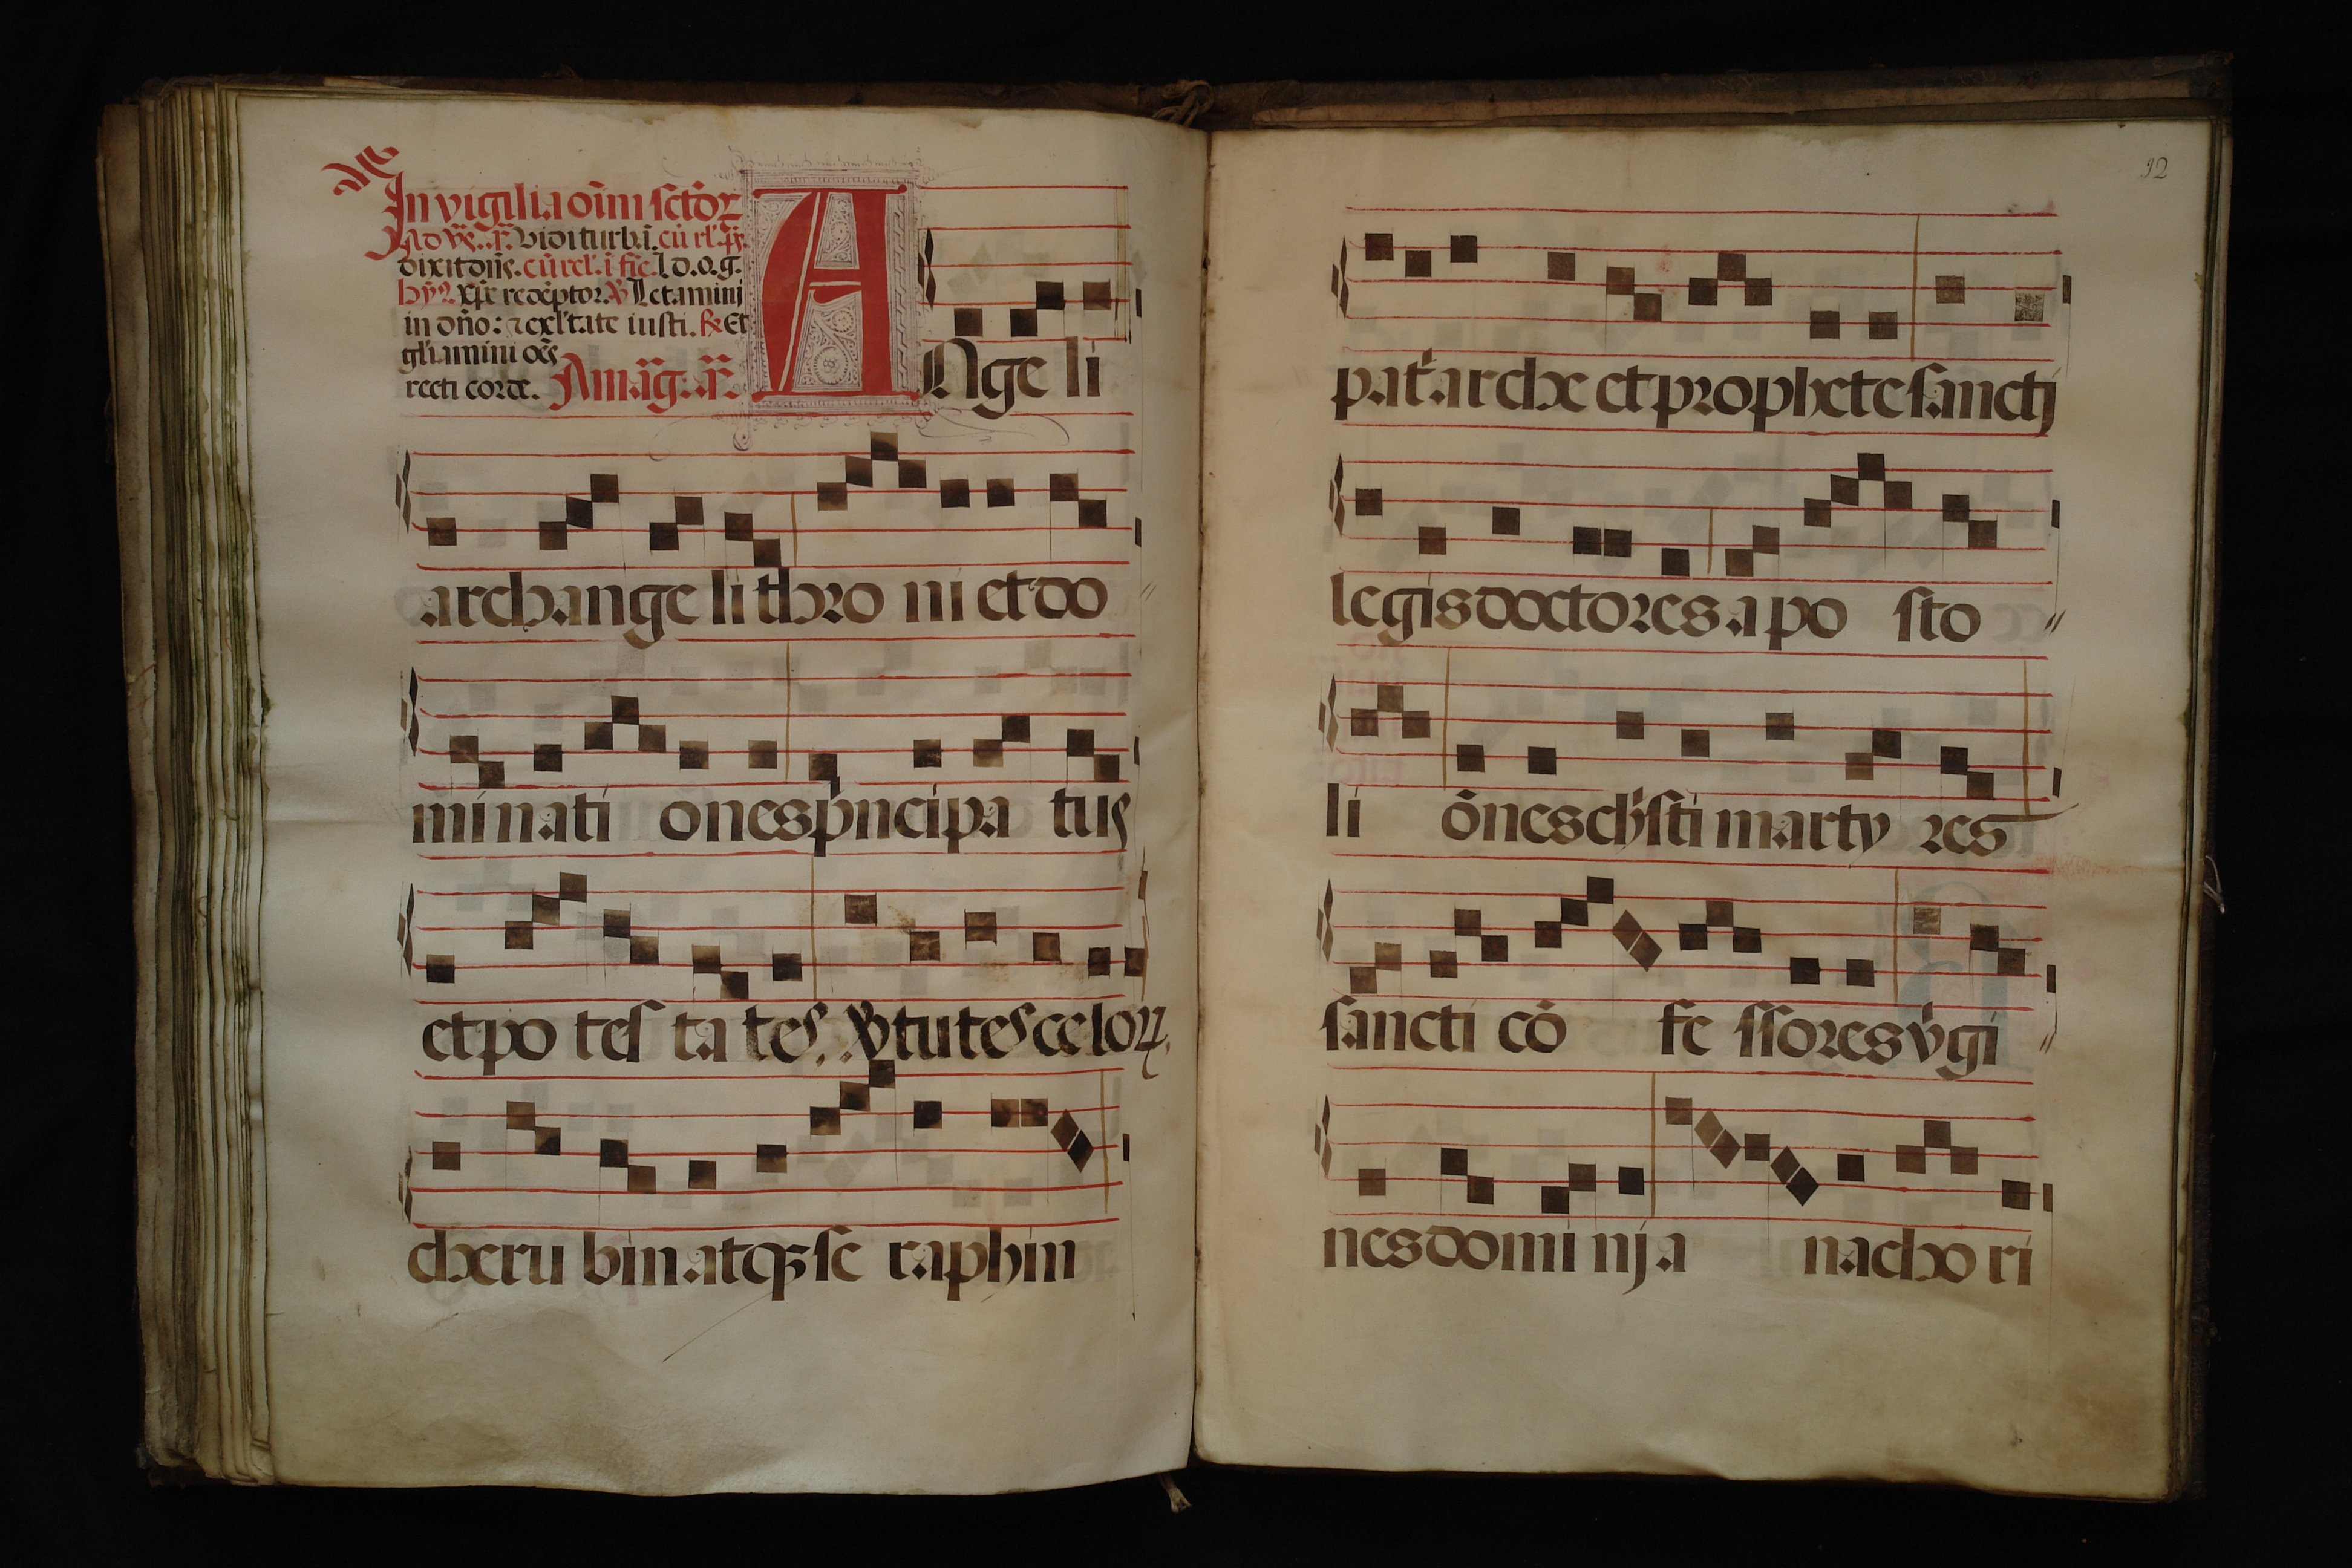 In vigilia oīm sctōꝝ
Ad vꝰ. añ. Vidi turbā. cū rl'. pꝰ.
dixit dn̄s. cū rel'. ī fīe. l d. o. g.
hyꝰ. xp̄e redēptor. ꝟ Letamini
in dn̄o: ⁊ exl'tate iusti. ℟ Et
gl'iamini oēs
recti corde. Amāg. añ. ANge li
archange li thro ni et do
mi nati ones pⁱncipa tus
et po tes ta tes. ꝟtutes celoꝝ
cheru bin atqꝫ se raphin
92
patⁱarche et prophete sancti
legis doctores apo sto
li ōnes chⁱsti marty res
sancti cō fe ssores vⁱgi
nes domi nj a nacho ri